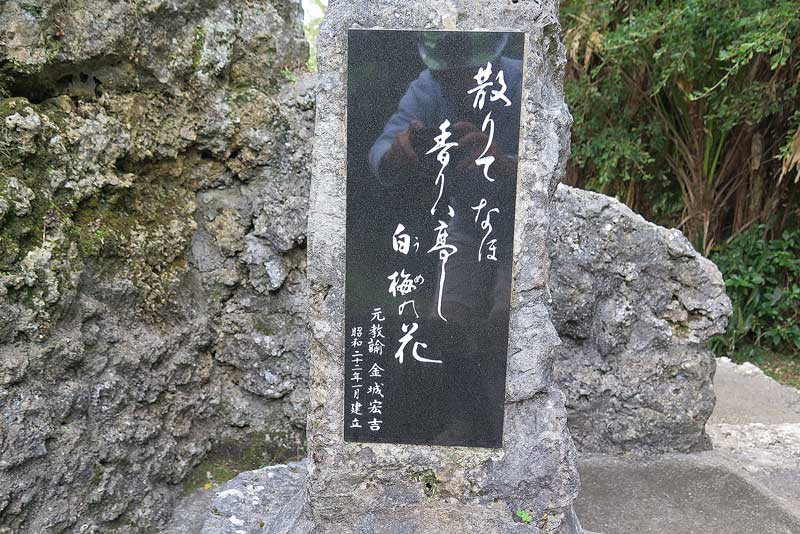 散りてなほ
香りハ高し
白梅の花
うめ
元教諭 金城宏吉
昭和二十二年一月建立